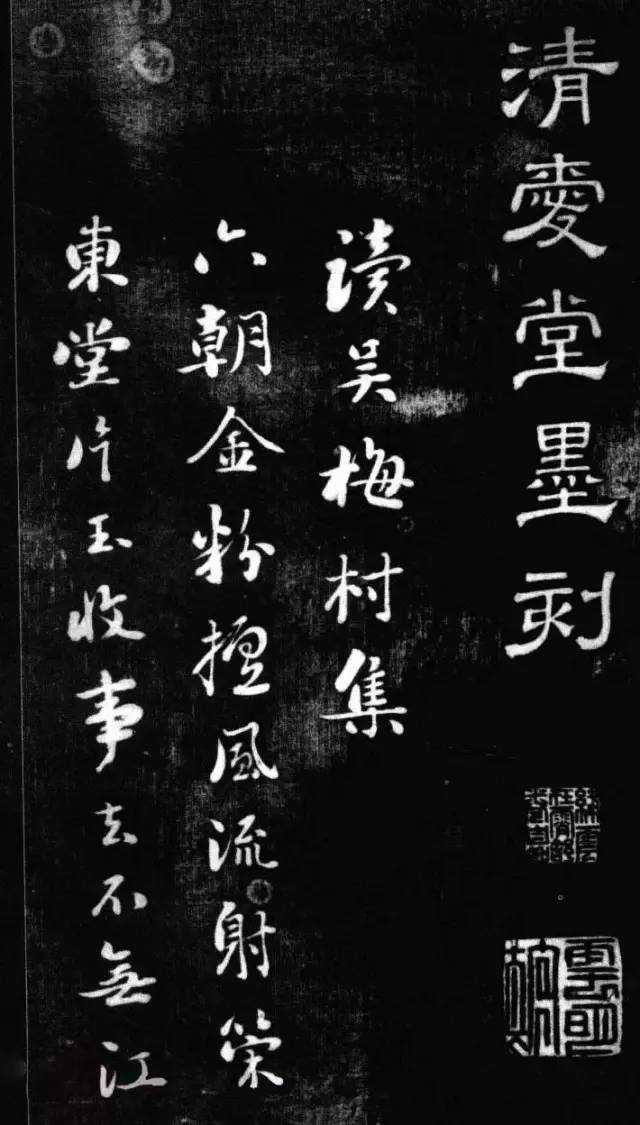 清愛堂墨刻
讀吳梅村集
六朝金粉擅風流射策
東堂片玉收事去不無江